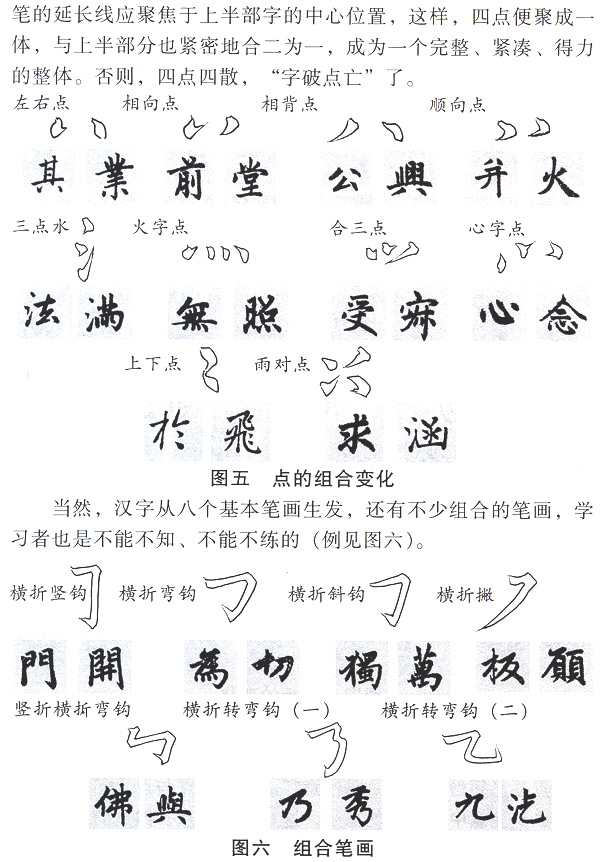 笔的延长线应聚焦于上半部字的中心位置，这样，四点便聚成一
体，与上半部分也紧密地合二为一，成为一个完整、紧凑、得力
的整体。否则，四点四散，“字破点亡”了。
左右点 相向点 相背点 顺向点
其 業 前 堂 公 興 并 火
三点水 火字点 合三点 心字点
法 满 無 照 受 寐 心 念
上下点 雨对点
於 飛 求 涵
图五 点的组合变化
当然，汉字从八个基本笔画生发，还有不少组合的笔画，学
习者也是不能不知、不能不练的（例见图六）。
横折竖钩 横折弯钩 横折斜钩 横折撇
門 開 為 切 獨 萬 板 願
竖折横折弯钩 横折转弯钩（一） 横折转弯钩（二）
佛 與 乃 秀 九
图六 组合笔画